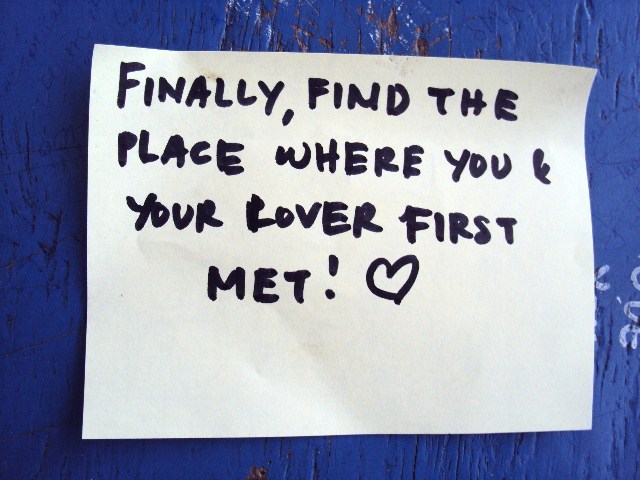 FINALLY, FIND THE
PLACE WHERE YOU &
YOUR LOVER FIRST
MET! ♡